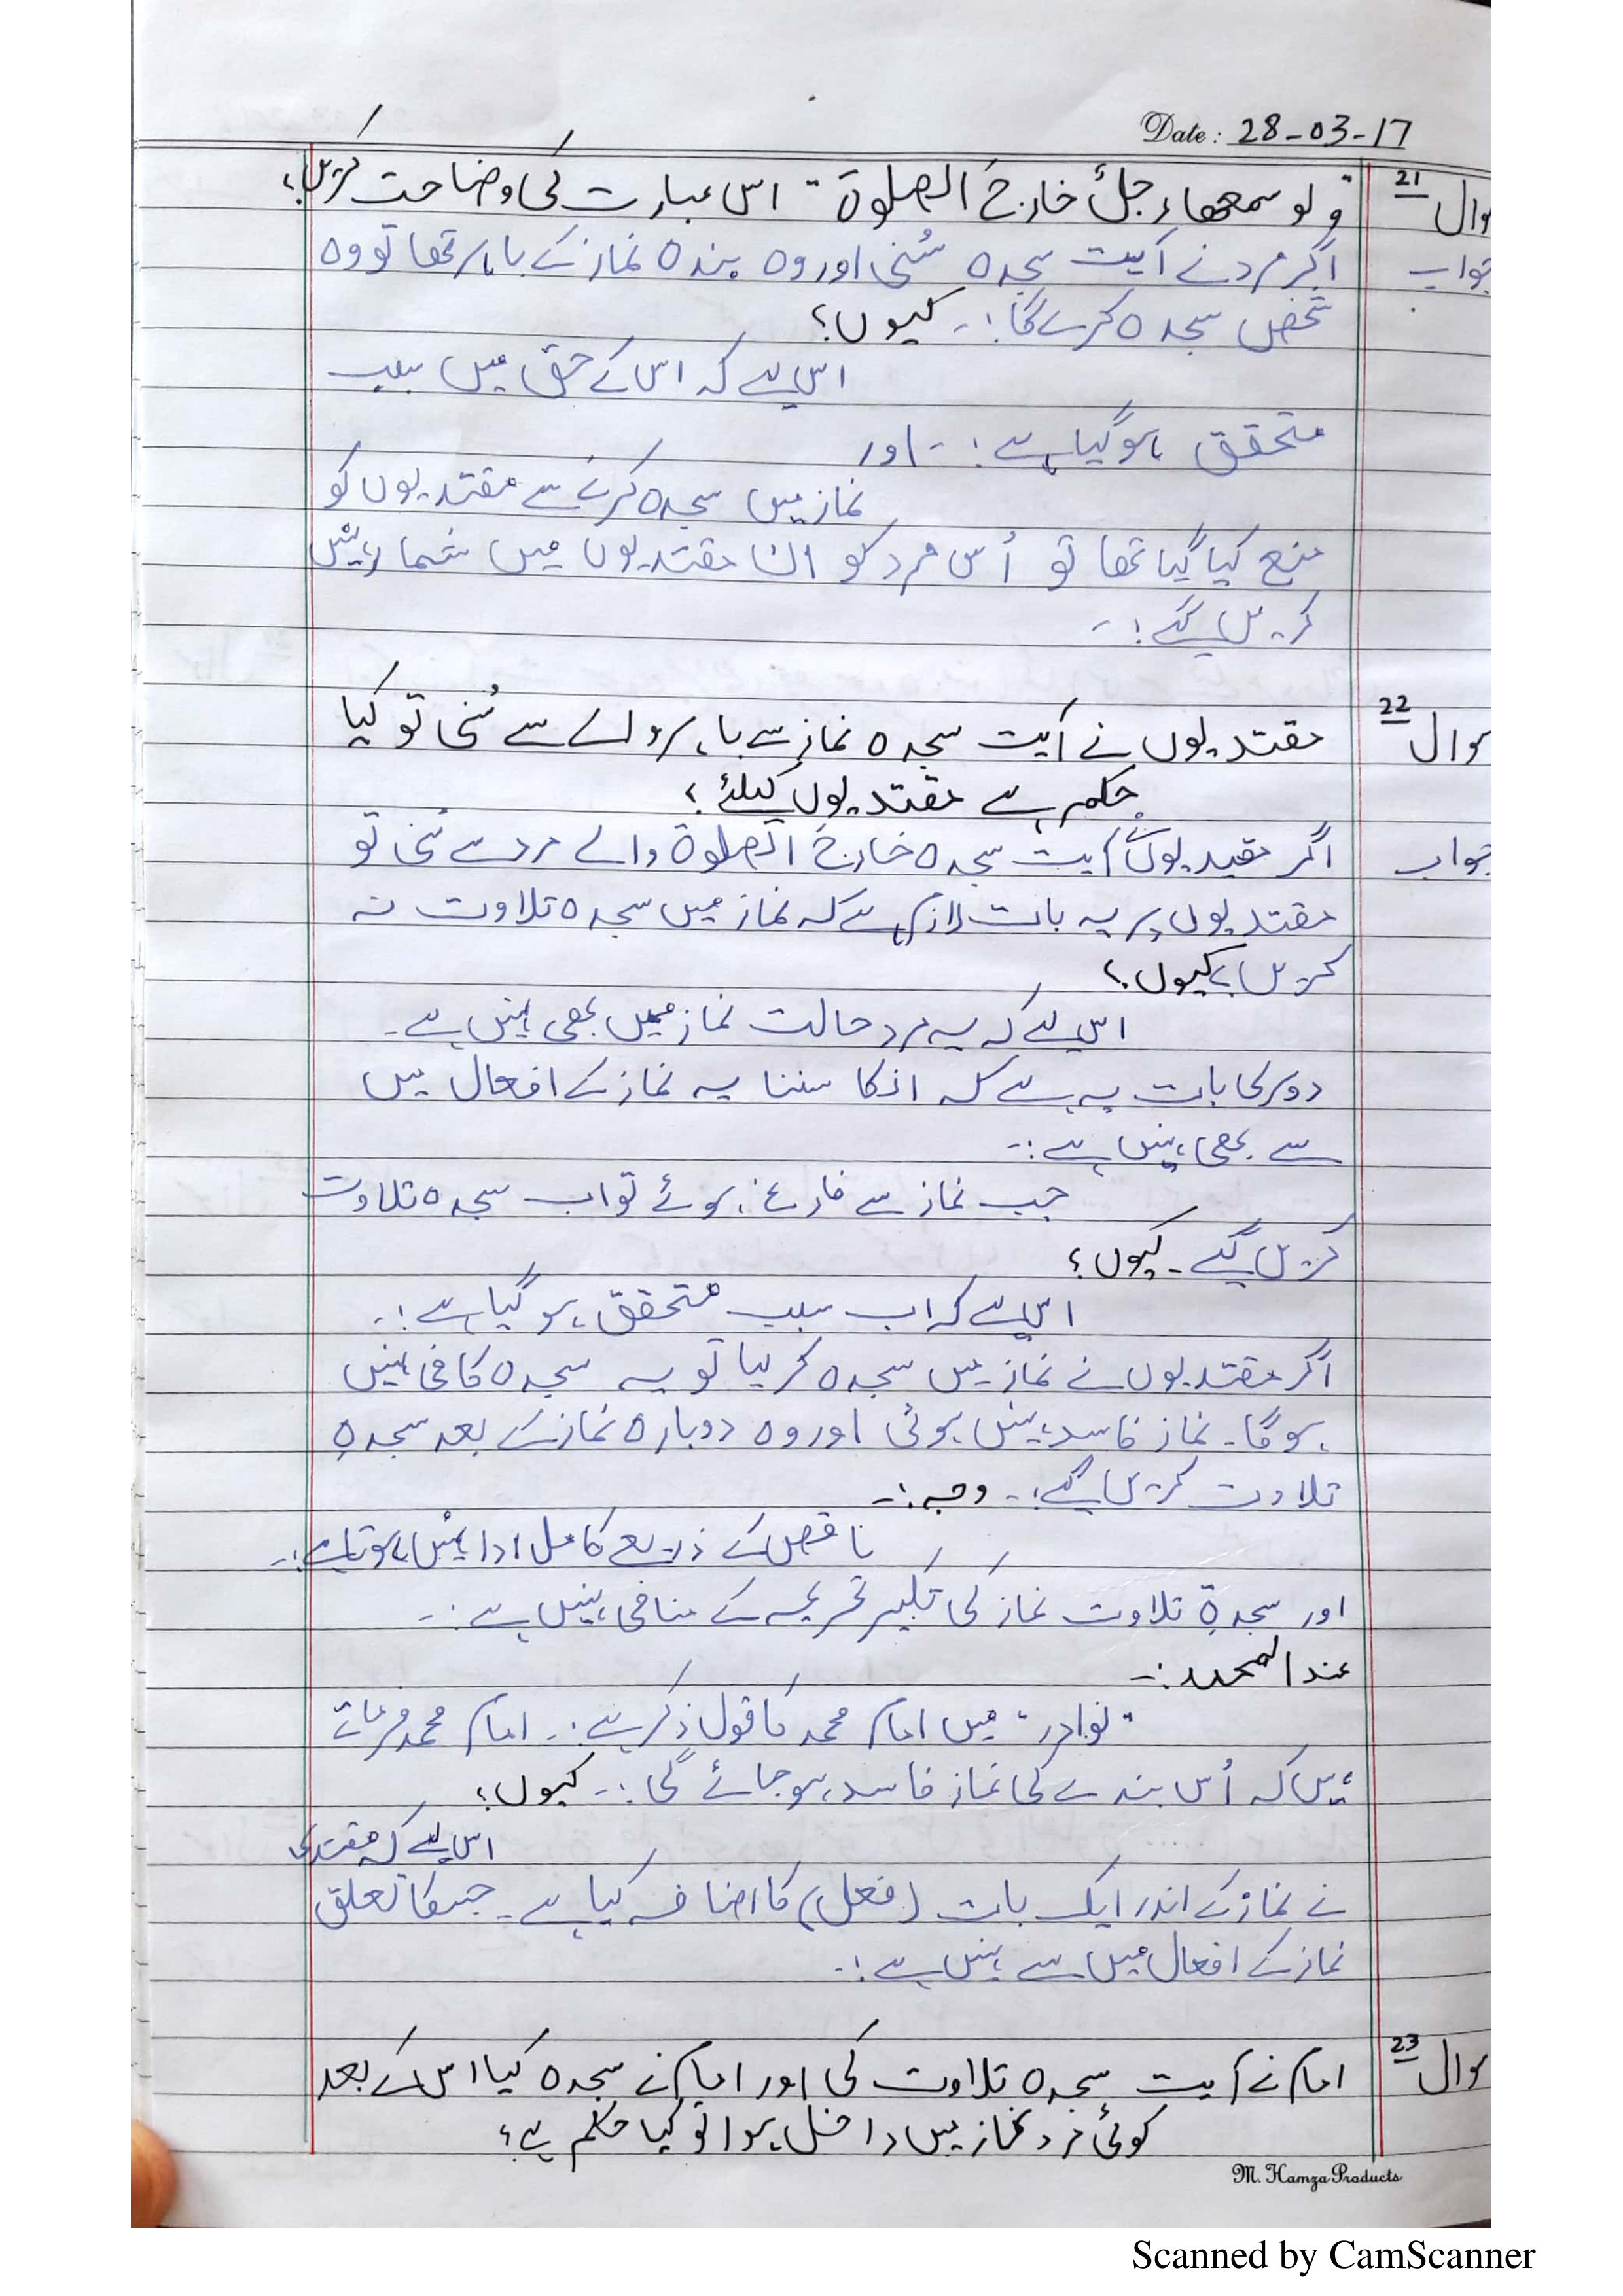 Date: 28-03-17
سوال 21 "ولو سمعھا رجلٌ خارجَ الصلوۃ" اس عبارت کی وضاحت کریں؟
جواب اگر مرد نے آیت سجدہ سُنی اور وہ بندہ نماز کے باہر تھا تو وہ
شخص سجدہ کرے گا:۔ کیوں؟
اس لیے کہ اس کے حق میں سبب
متحقق ہوگیا ہے:۔ اور
نماز میں سجدہ کرنے سے مقتدیوں کو
منع کیا گیا تھا تو اُس مرد کو ان مقتدیوں میں شمار نہیں
کریں گے:۔
سوال 22 مقتدیوں نے آیت سجدہ نماز سے باہر والے سے سُنی تو کیا
حکم ہے مقتدیوں کیلئے؟
جواب اگر مقتدیوں نے آیت سجدہ خارجَ الصلوۃ والے مرد سے سُنی تو
مقتدیوں پر یہ بات لازم ہے کہ نماز میں سجدہ تلاوت نہ
کریں، کیوں؟
اس لیے کہ یہ مرد حالت نماز میں بھی نہیں ہے۔
دوسری بات یہ ہے کہ انکا سننا یہ نماز کے افعال میں
سے بھی نہیں ہے:۔
جب نماز سے فارغ ہوئے تو اب سجدہ تلاوت
کریں گے۔ کیوں؟
اس لیے کہ اب سبب متحقق ہوگیا ہے:۔
اگر مقتدیوں نے نماز میں سجدہ کر لیا تو یہ سجدہ کافی نہیں
ہوگا۔ نماز فاسد نہیں ہوئی اور وہ دوبارہ نماز کے بعد سجدہِ
تلاوت کریں گے:۔ وجہ:۔
ناقص کے ذریعے کامل ادا نہیں ہوتا ہے:۔
اور سجدۃِ تلاوت نماز کی تکبیر تحریمہ کے منافی نہیں ہے:۔
عند المحمد:۔
"نوادر" میں امام محمد کا قول ذکر ہے:۔ امام محمد فرماتے
ہیں کہ اُس بندے کی نماز فاسد ہوجائے گی:۔ کیوں؟
اس لیے کہ مقتدی
نے نماز کے اندر ایک بات (فعل) کا اضافہ کیا ہے۔ جسکا تعلق
نماز کے افعال میں سے نہیں ہے:۔
سوال 23 امام نے آیت سجدہ تلاوت کی اور امام نے سجدہ کیا اس کے بعد
کوئی مرد نماز میں داخل ہوا تو کیا حکم ہے؟
M. Hamza Products
Scanned by CamScanner